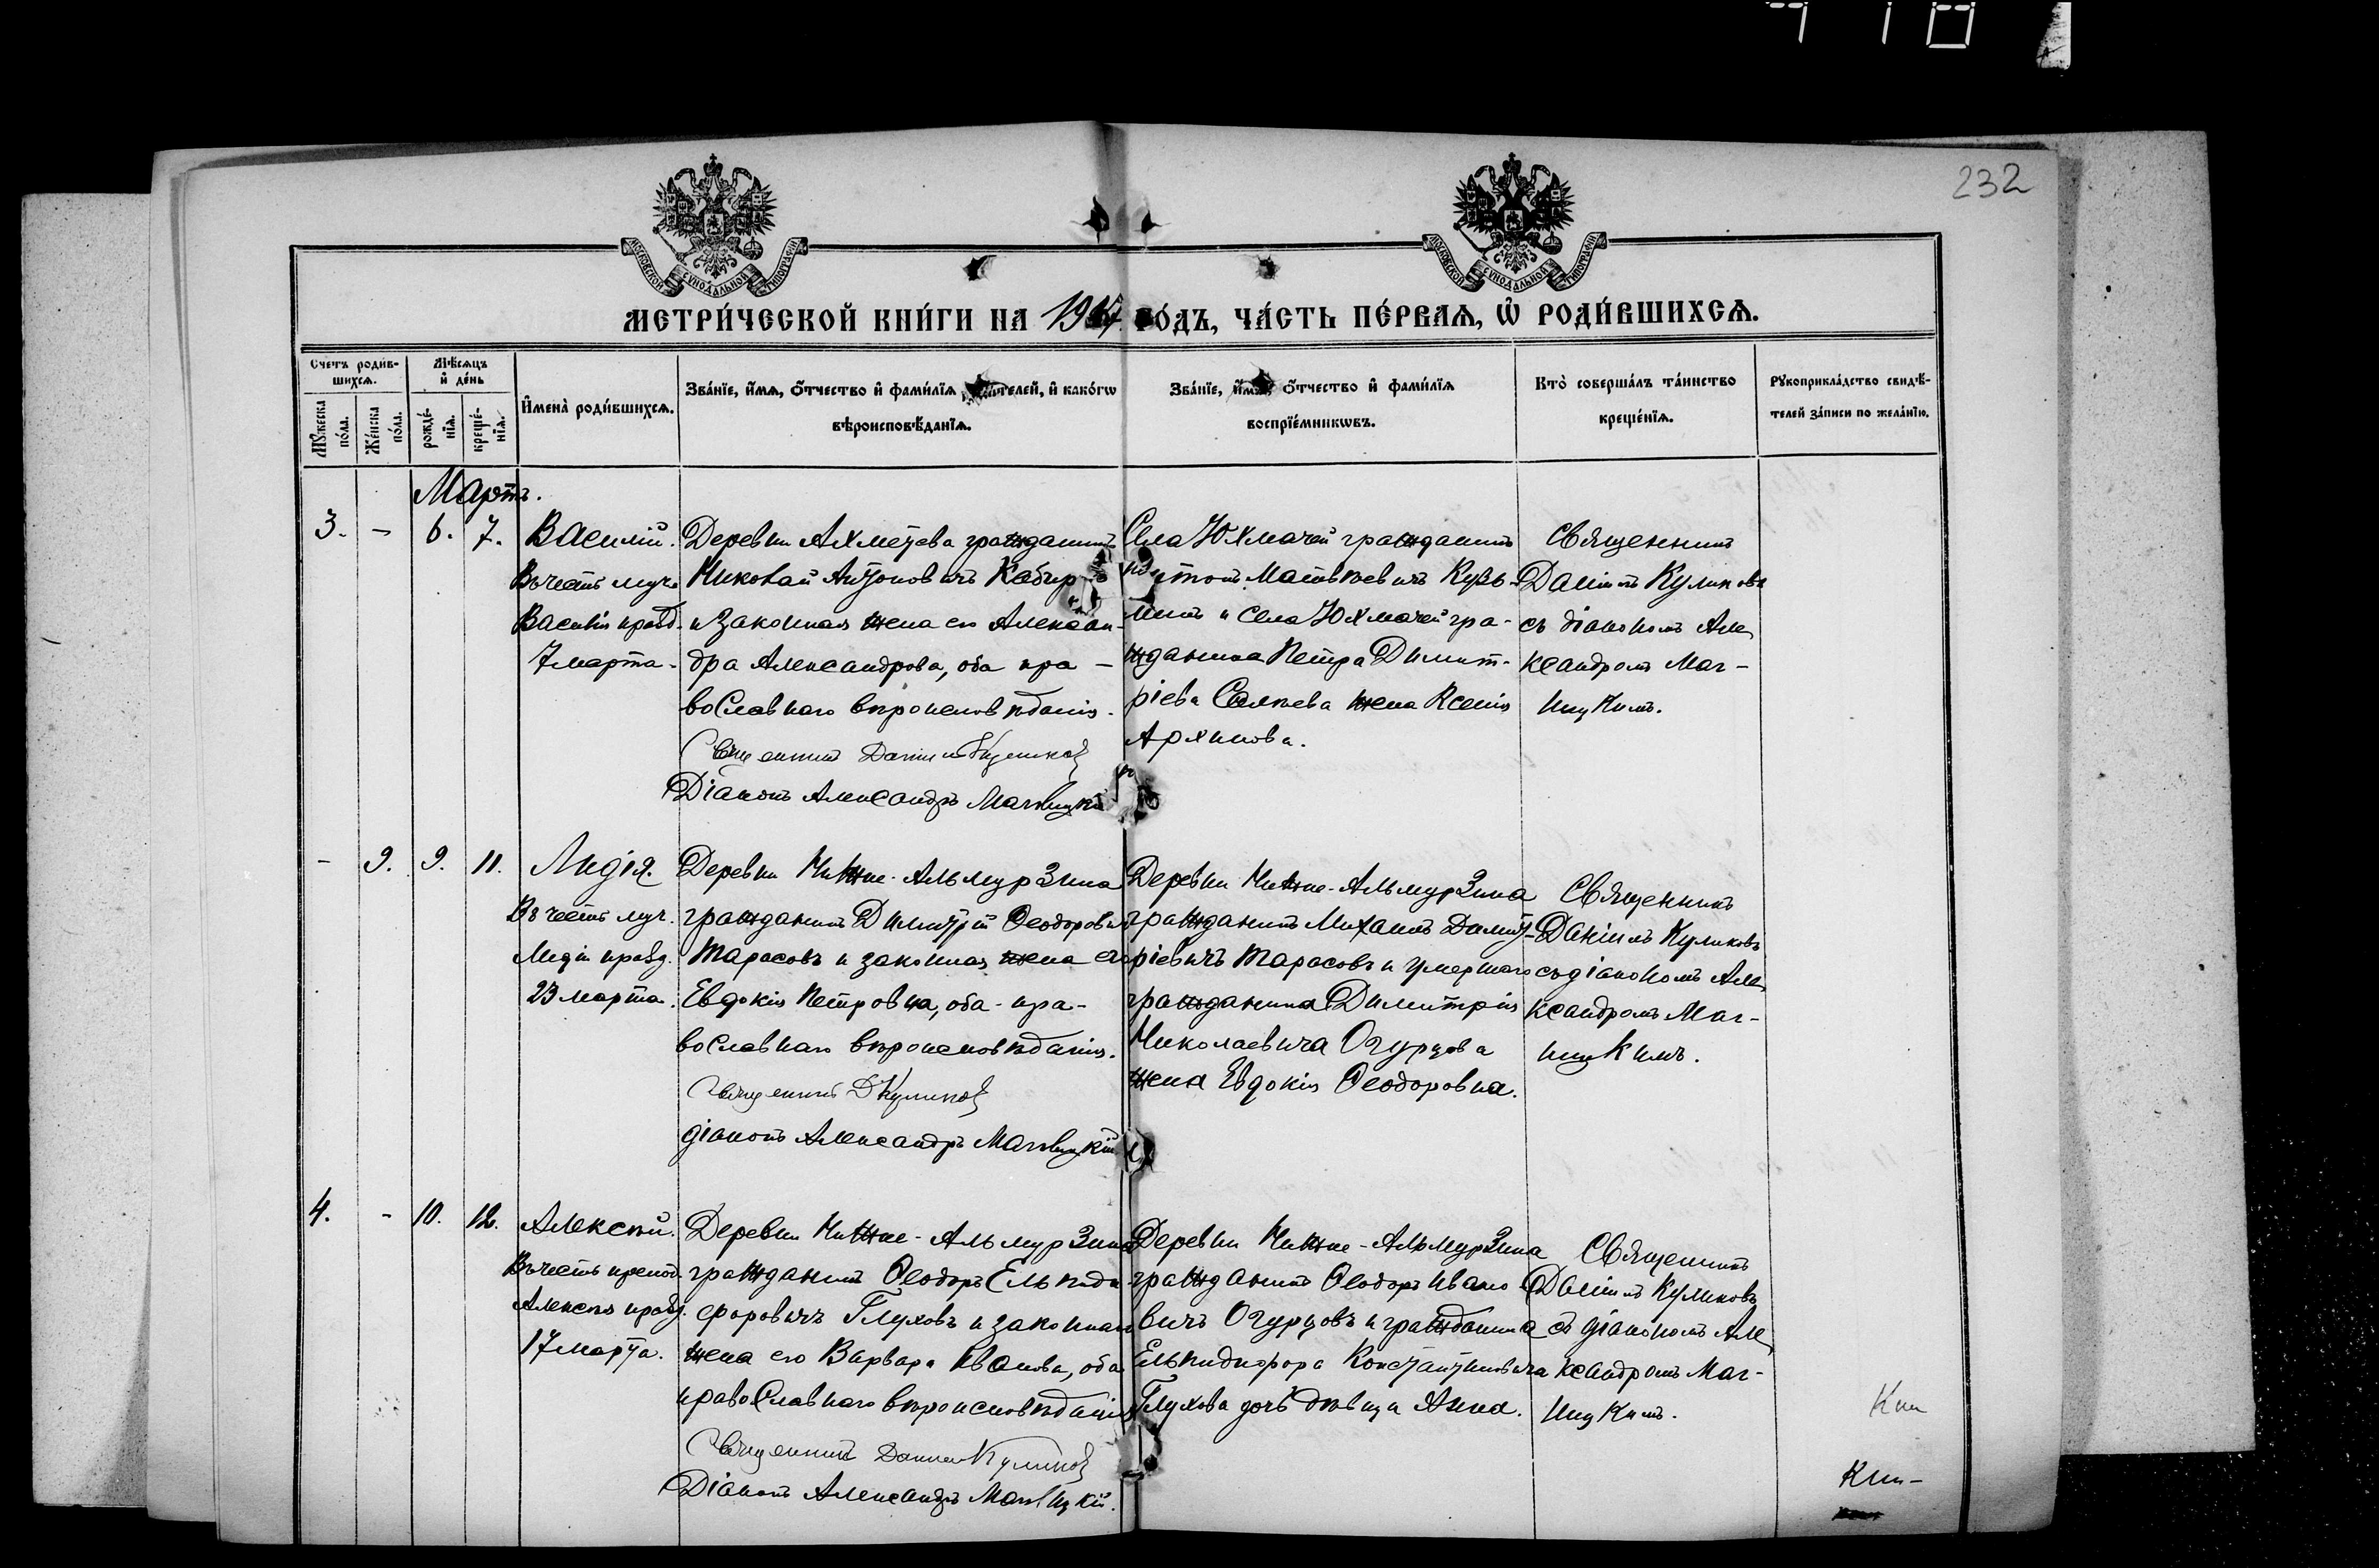 232
МОСКОВСКОЙ СѴНОДАЛЬНОЙ ТИПОГРАФІИ
МОСКОВСКОЙ СѴНОДАЛЬНОЙ ТИПОГРАФІИ
МЕТРИ́ЧЕСКОЙ КНИ́ГИ НА 1917 ГО́ДЪ, ЧА́СТЬ ПЕ́РВАѦ, Ѡ҆ РОДИ́ВШИХСѦ.
Счетъ роди́в-
шихсѧ.
Мꙋ́жеска по́ла.
Же́нска по́ла.
Мѣ́сѧцъ
и҆ де́нь
рожде́-
нїѧ.
креще́-
нїѧ.
И҆мена̀ роди́вшихсѧ.
Зва́нїе, и҆́мѧ, ѻ҆́тчество и҆ фами́лїѧ роди́телей, и҆ како́гѡ
вѣроисповѣ́данїѧ.
Зва́нїе, и҆́мѧ, ѻ҆́тчество и҆ фами́лїѧ
воспрїе́мникѡвъ.
Кто̀ соверша́лъ та́инство
креще́нїѧ.
Рꙋкоприкла́дство свидѣ́-
телей за́писи по жела́нїю.
Мартъ.
3. - 6. 7.
Василій.
Въ честь муч.
Василія празд.
7 марта.
Деревни Ахметева гражданинъ
Николай Антоновичъ
и законная жена его Алексан-
дра Александрова, оба пра-
вославнаго вѣроисповѣданія.
Священникъ Даниилъ Куликовъ
Діаконъ Александръ Магницкій
Села Юхмачей гражданинъ
Матвѣевичъ Кузь-
минъ и села Юхмачей гра-
жданина Петра Димит-
ріева жена Ксенія
Архипова.
Священникъ
Даніилъ Куликовъ
съ діакономъ Але
ксандромъ Маг-
ницкимъ.
- 9. 9. 11.
Лидія.
Въ честь муч.
Лидіи празд.
23 марта.
Деревни Нижне-Альмурзина
гражданинъ Димитрій Ѳеодоровичъ
Тарасовъ и законная жена его
Евдокія Петровна, оба пра-
вославнаго вѣроисповѣданія.
Священникъ Д Куликовъ
діаконъ Александръ Магницкій
Деревни Нижне-Альмурзина
гражданинъ Михаилъ Димит-
ріевичъ Тарасовъ и умершаго
гражданина Димитрія
Николаевича Огурцова
жена Евдокія Ѳеодоровна.
Священникъ
Даніилъ Куликовъ
съ діакономъ Але
ксандромъ Маг-
ницкимъ.
4. - 10. 12.
Алексѣй.
Въ честь препод.
Алексія празд.
17 марта.
Деревни Нижне-Альмурзина
гражданинъ Ѳеодоръ Ельпиди-
форовичъ Глуховъ и законная
жена его Варвара Иванова, оба
православнаго вѣроисповѣданія
Священникъ Даниилъ Куликовъ
Діаконъ Александръ Магницкій.
Деревни Нижне-Альмурзина
гражданинъ Ѳеодоръ Ивано
вичъ Огурцовъ и гражданина
Ельпидифора Константиновича
Глухова дочь дѣвица Анна.
Священникъ
Даніилъ Куликовъ
съ діакономъ Але
ксандромъ Маг-
ницкимъ.